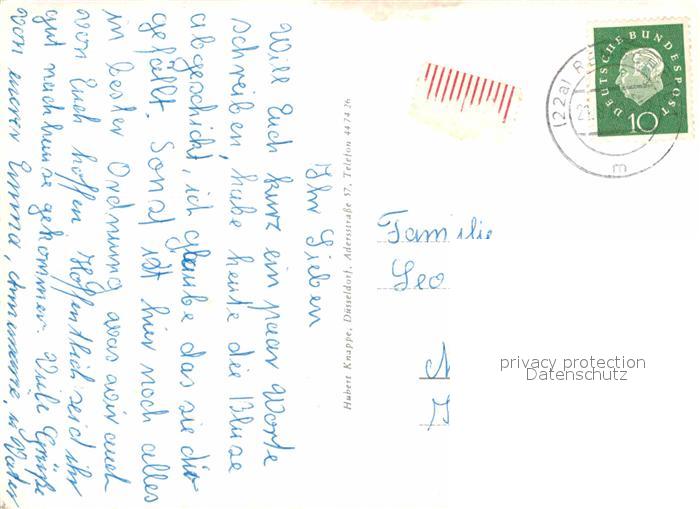 Ihr Lieben
Will Euch kurz ein paar Worte
schreiben, habe heute die Bluse
abgeschickt, ich glaube das sie dir
gefällt. Sonst ist hier noch alles
in bester Ordnung was wir auch
von Euch hoffen. Hoffentlich seid ihr
gut nachhause gekommen. Viele Grüße
von eurer Emma, Annemarie, u. Vater
Hubert Knappe, Düsseldorf, Adersstraße 57, Telefon 447426
DEUTSCHE BUNDESPOST
10
(22a)
m
Familie
Leo
privacy protection
Datenschutz